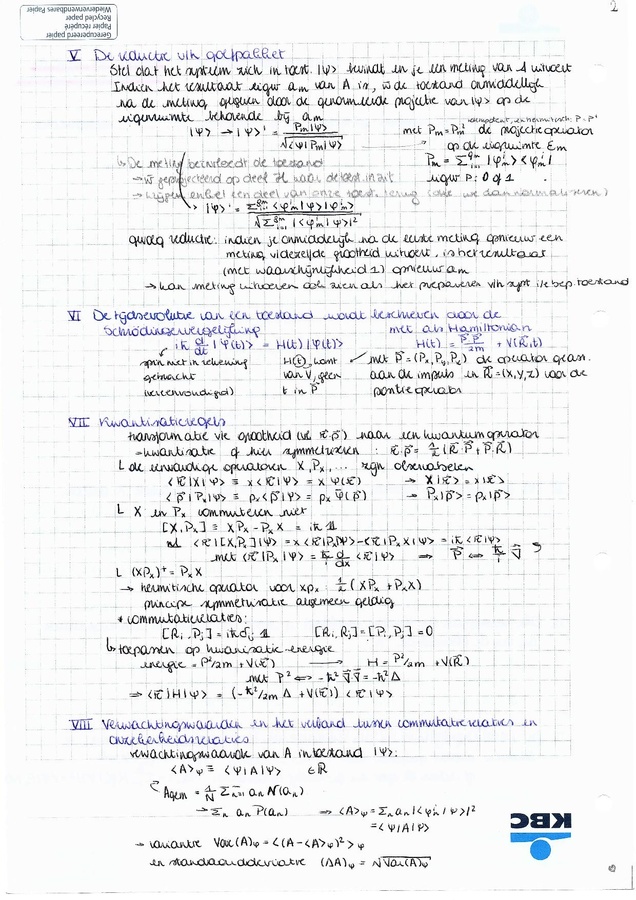 2
Gerecupereerd papier
Papier récupéré
Recycled paper
Wiederverwendbares Papier
V De reductie v/h golfpakket
Stel dat het systeem zich in toest. |ψ> bevindt en je een meting van A uitvoert
Indien het resultaat eigw am van A is, is de toestand onmiddellijk
na de meting gegeven door de genormeerde projectie van |ψ> op de
eigenruimte behorende bij am
|ψ> → |ψ>' = Pm|ψ> / √<ψ|Pm|ψ>
met Pm = Pm† de projectieoperator
op de eigruimte Em
Pm = Σ |φm^i><φm^i|
eigw P: 0 of 1
↳ De meting beïnvloedt de toestand
→ geprojecteerd op deel H waar de toest. in zit
→ krijgen enkel een deel van onze toest. terug (die we dan normaliseren)
|ψ>' = Σ <φm^i|ψ>|φm^i> / √Σ |<φm^i|ψ>|²
gevolg reductie: indien je onmiddellijk na de eerste meting opnieuw een
meting v/dezelfde grootheid uitvoert, is het resultaat
(met waarschijnlijkheid 1) opnieuw am
→ kan meting uitvoeren ook zien als het prepareren v/h syst i/e bep. toestand
VI De tijdsevolutie van een toestand wordt beschreven door de
Schrödingervergelijking met als Hamiltoniaan
iℏ d/dt |ψ(t)> = H(t)|ψ(t)> H(t) = P⃗·P⃗/2m + V(R⃗,t)
spin niet in rekening H(t), want met P⃗ = (Px, Py, Pz) de operator geass.
gebracht van V, geen aan de impuls en R⃗ = (X,Y,Z) voor de
(vereenvoudigd) t in P⃗ positieoperator
VII Kwantisatieregels
transformatie v/e grootheid (vb r⃗·p⃗) naar een kwantumoperator
= kwantisatie of hier symmetriseren: r⃗·p⃗ = ½(R⃗·P⃗ + P⃗·R⃗)
L de eenvoudige operatoren X, Px, ... zijn observabelen
<r⃗|X|ψ> ≡ x<r⃗|ψ> = xψ(r⃗) → X|r⃗> = x|r⃗>
<p⃗|Px|ψ> ≡ px<p⃗|ψ> = px ψ̄(p⃗) → Px|p⃗> = px|p⃗>
L X en Px commuteren niet
[X,Px] ≡ XPx - PxX = iℏ 𝟙
nl <r⃗|[X,Px]|ψ> = x<r⃗|Px|ψ> - <r⃗|PxX|ψ> = iℏ<r⃗|ψ>
met <r⃗|Px|ψ> = ℏ/i d/dx <r⃗|ψ> ⇒ P⃗ ⇔ ℏ/i ∇⃗
L (XPx)† = PxX
→ hermitische operator voor xpx: ½(XPx + PxX)
principe symmetrisatie algemeen geldig
* commutatierelaties:
[Ri, Pj] = iℏδij 𝟙 [Ri, Rj] = [Pi, Pj] = 0
↳ toepassen op kwantisatie energie
energie = p²/2m + V(r⃗) → H = P²/2m + V(R⃗)
met P² ⇔ -ℏ² ∇⃗·∇⃗ = -ℏ²Δ
⇒ <r⃗|H|ψ> = (-ℏ²/2m Δ + V(r⃗)) <r⃗|ψ>
VIII Verwachtingswaarden en het verband tussen commutatierelaties en
onzekerheidsrelaties
verwachtingswaarde van A in toestand |ψ>:
<A>ψ ≡ <ψ|A|ψ> ∈ ℝ
Agem = 1/N Σ an N(an)
→ Σn an P(an) ⇒ <A>ψ = Σn an |<φn^i|ψ>|²
= <ψ|A|ψ>
→ variantie Var(A)ψ = <(A - <A>ψ)²>ψ
en standaarddeviatie (ΔA)ψ = √Var(A)ψ
KBC